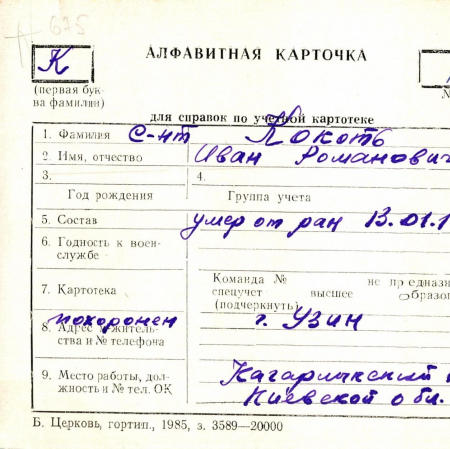 675
К
АЛФАВИТНАЯ КАРТОЧКА
(первая бук-
ва фамилии)
для справок по учетной картотеке
1. Фамилия с-нт Кокоть
2. Имя, отчество Иван Романович
3. 4.
Год рождения Группа учета
5. Состав умер от ран 13.01.1
6. Годность к воен-
службе
7. Картотека Команда № не предназн
спецучет высшее образо
(подчеркнуть)
похоронен г. Узин
8. Адрес житель-
ства и № телефона
9. Место работы, дол-
жность и № тел. ОК
Кагарлинский
Киевской обл.
Б. Церковь, гортип., 1985, з. 3589—20000